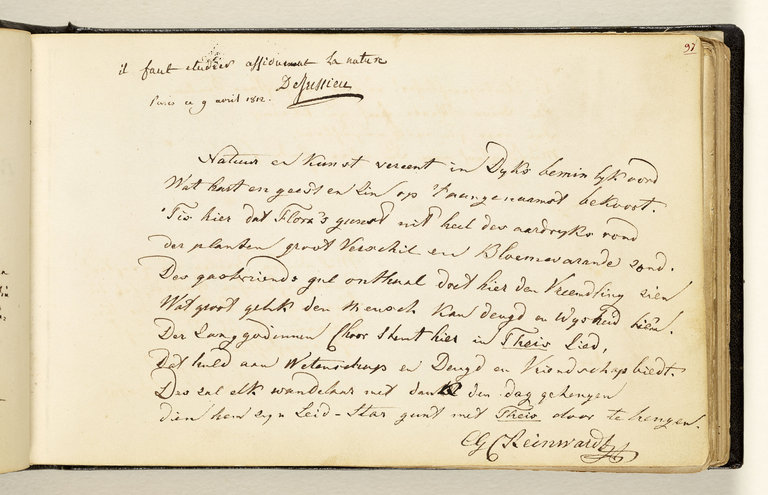 97
il faut etudier assiduement la nature
DeJussieu
Paris ce 9 avril 1812.
Natuur en Kunst vereent in Dyks bemin lyk oord
Wat hart en geest en zin op 't aangenaamst bekoort.
'Tis hier dat Flora's gunst uit heel des aardryks rond
der planten groot Verschil en Bloemenwarande zond.
Des gastvriends gul onthaal doet hier den Vreemdling zien
Wat groot geluk den Mensch kan deugd en Wysheid biên.
Der Zanggodinnen Choor stemt hier in Theis Lied,
Dat huld aan Wetenschap en Deugd en Vriendschap biedt.
Des zal elk wandelaar met dank den dag gehengen
dien hem zyn Leid-Star gunt met Theis door te brengen.
CGC Reinwardt